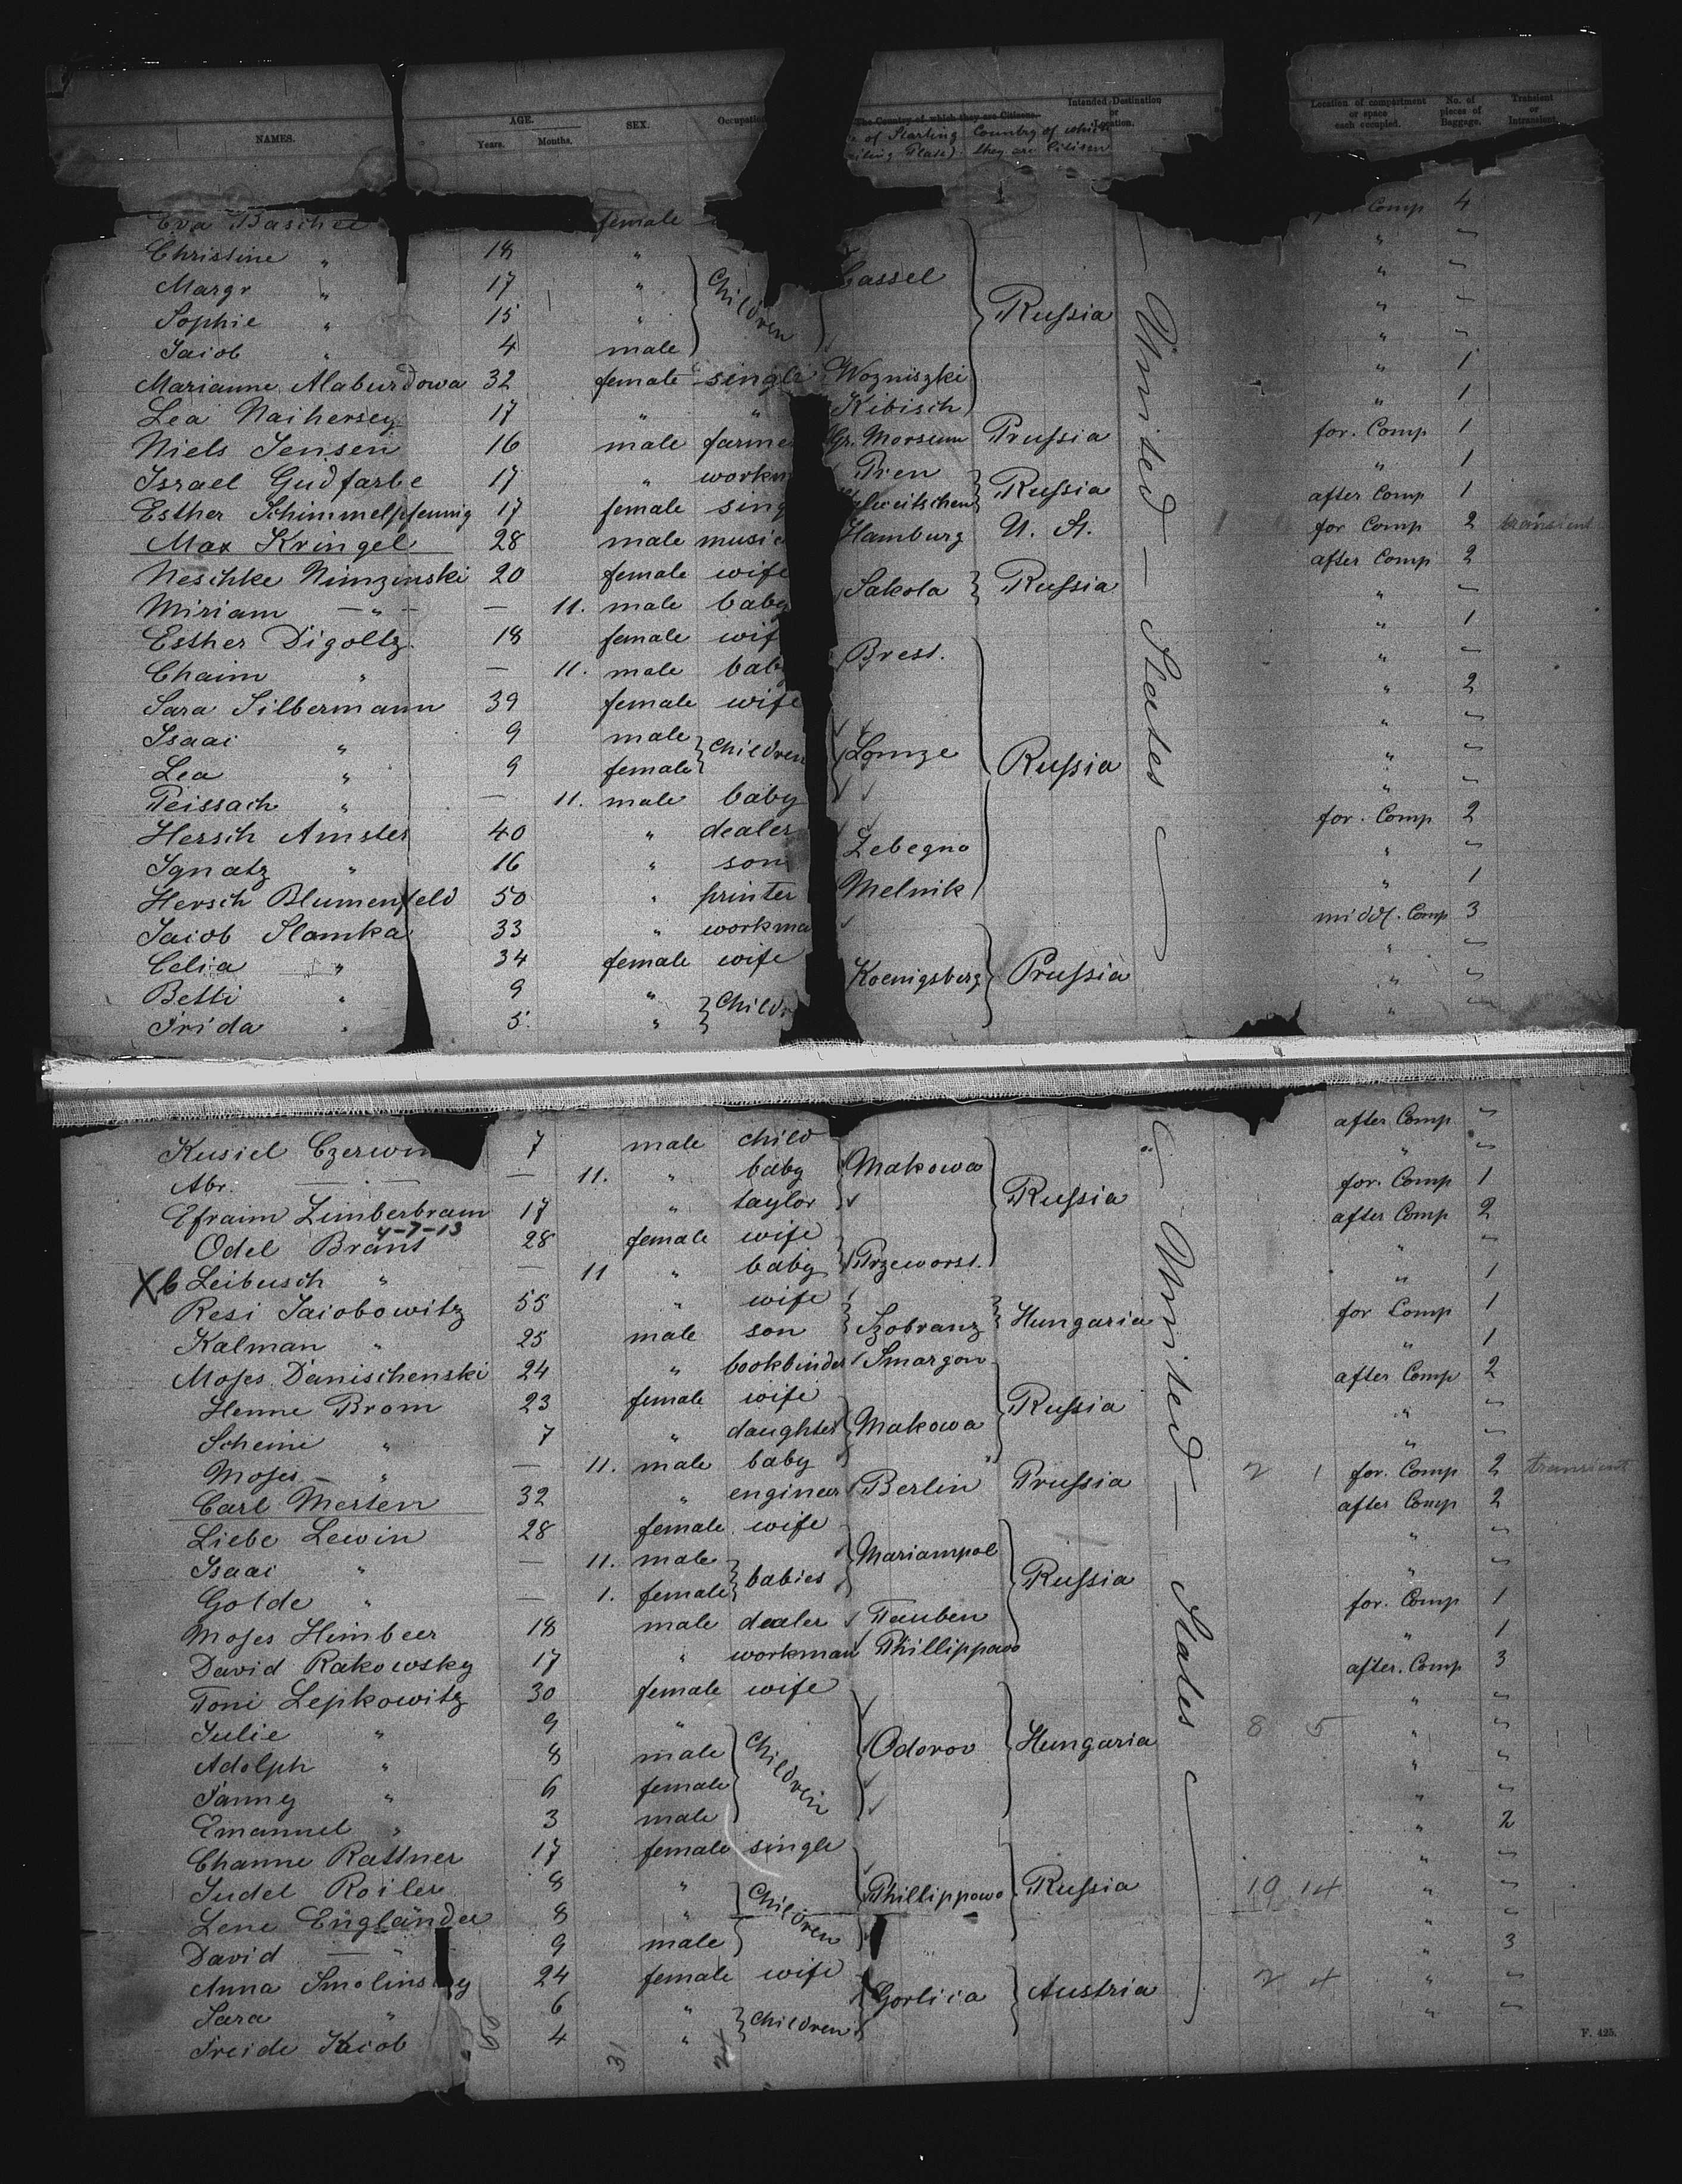 NAMES. AGE. Years. Months. SEX. Occupation The Country of which they are Citizens. Intended Destination or Location. Location of compartment or space each occupied. No. of pieces of Baggage. Transient or Intransient
of Starting Country of which
Place). they are Citizen
Eva female Comp 4
Christine " 18 " " "
Margr " 17 " Children Cassel "
Sophie " 15 " Russia "
Jaiob " 4 male "
Marianne Alaburdowa 32 female single Wozniszki " 1
Lea Naihersey 17 " " Kibisch " 1
Niels Jensen 16 male farme Gr. Morsum Prussia for. Comp 1
Israel Gudfarbe 17 " workm Pren Russia " 1
Esther Schimmelpfennig 17 female sing after Comp 1
Max Kringel 28 male music Hamburg U. St. 1 for Comp 2 transient
Neschke Nimzinski 20 female wife Sakola Russia after Comp 2
Miriam — " — — 11. male baby " "
Esther Digoltz. 18 female wif Brest. " 1
Chaim " — 11. male bab "
Sara Silbermann 39 female wife " 2
Isaai " 9 male Children Lomze Russia "
Lea " 9 female "
Peissach " — 11. male baby "
Hersch Amster 40 " dealer Zebegno for. Comp 2
Ignatz " 16 " son "
Hersch Blumenfeld 50 " printer Melnik " 1
Jaiob Slamka 33 " workma middl. Comp 3
Celia " 34 female wife Koenigsberg Prussia "
Betti " 9 " Childr "
Frida " 5. " "
United — States
Kusiel Czerwin 7 male child Makowa Russia after Comp "
Abr. — 11. " baby "
Efraim Zimberbram 17 " taylor for. Comp 1
4-7-13
Odel Brans 28 female wife Przeworst. after Comp 2
X6 Leibusch " — 11 " baby "
Resi Jaiobowitz 55 " wife Szobranz Hungaria " 1
Kalman " 25 male son for Comp 1
Moses Danischenski 24 " bookbinder Smargon Russia " 1
Henne Brom 23 female wife Makowa after Comp 2
Scheini " 7 " daughter "
Moses — " — 11. male baby "
Carl Merten 32 " engineer Berlin Prussia 2 1 for. Comp 2 transient
Liebe Lewin 28 female wife Mariampol Russia after Comp 2
Isaai " — 11. male babies "
Golde " — 1. female "
Moses Himbeer 18 male dealer Tauben for. Comp 1
David Rakowsky 17 " workman Phillippowo " 1
Toni Lepkowitz 30 female wife Odorov Hungaria after. Comp 3
Julie " 9 " Children "
Adolph " 8 male 8 5 "
Fanny " 6 female "
Emanuel " 3 male "
Channe Rattner 17 female single Phillippowo Russia " 2
Judel Roiler 8 " Children "
Lene Engländer 8 " 19 14 "
David — " 9 male "
Anna Smolinsky 24 female wife Gorlica Austria " 3
Sara " 6 " Children 2 4 "
Freide Kaiob 4 " "
31
United — States
F. 425.